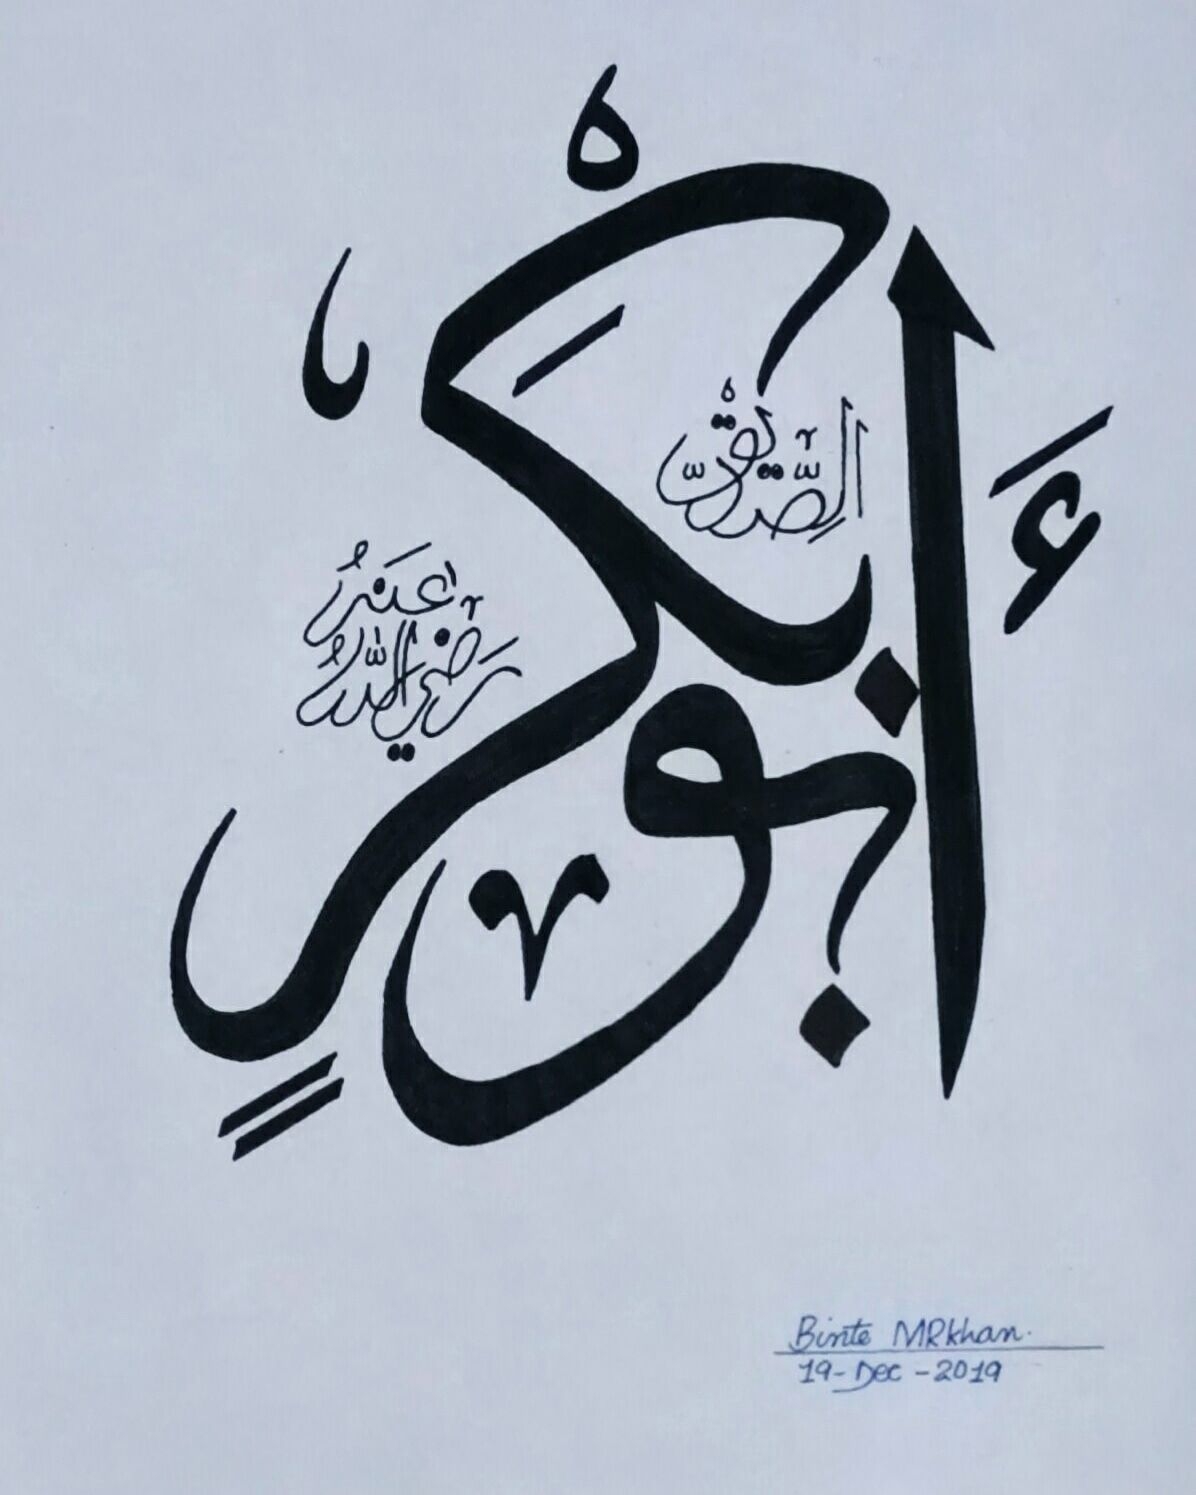 أَبُو بَكْرٍ
الصِّدِّيْق
رَضِيَ اللّٰهُ
عَنْهُ
Binte MRkhan.
19-Dec-2019